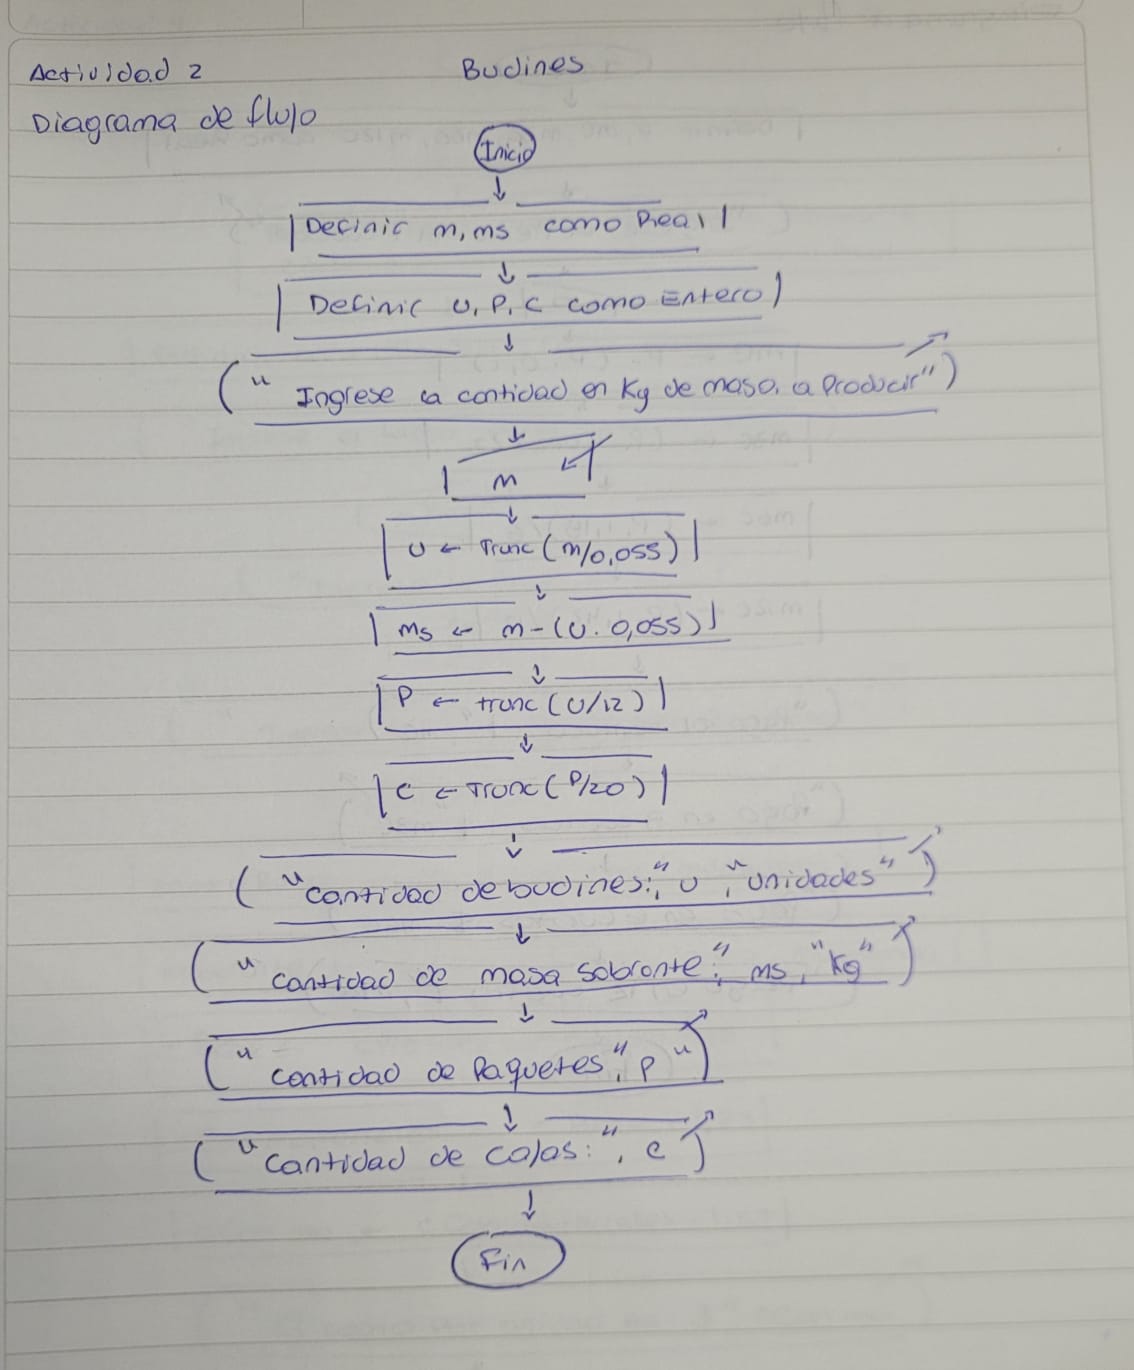 Actividad 2
Budines
Diagrama de flujo
Inicio
Definir m, ms como Real
Definir U, P, C como Entero
(" Ingrese la cantidad en Kg de masa a Producir")
m
U ← Trunc (m/0,055)
ms ← m-(U. 0,055)
P ← trunc (U/12)
C ← Trunc (P/20)
("cantidad de budines:", U, "unidades")
("cantidad de masa sobrante:", ms, "Kg")
("cantidad de Paquetes", P ")
("cantidad de cajas:", c)
Fin